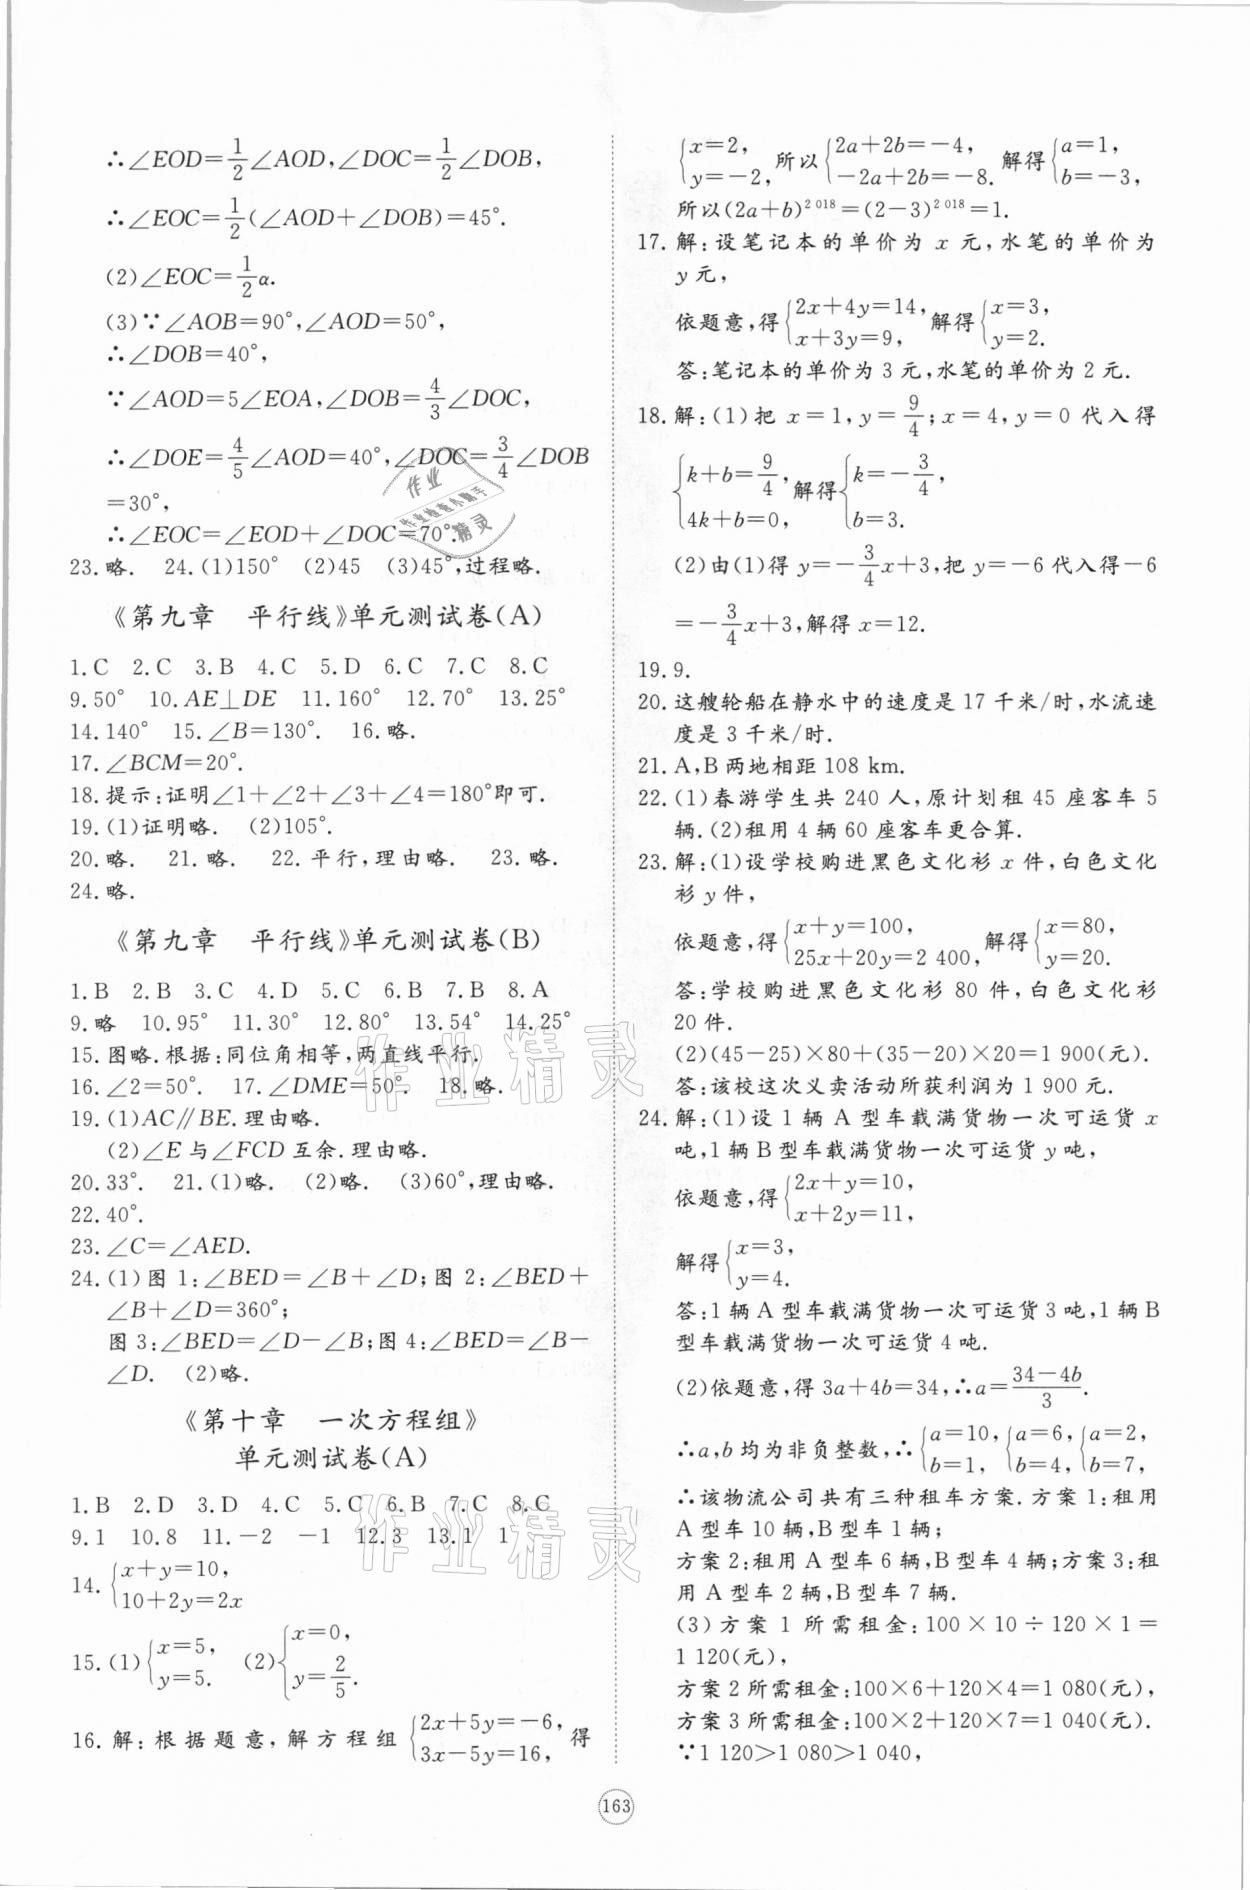 ∴∠EOD=1/2∠AOD,∠DOC=1/2∠DOB,
∴∠EOC=1/2(∠AOD+∠DOB)=45°.
(2)∠EOC=1/2α.
(3)∵∠AOB=90°,∠AOD=50°,
∴∠DOB=40°,
∵∠AOD=5∠EOA,∠DOB=4/3∠DOC,
∴∠DOE=4/5∠AOD=40°,∠DOC=3/4∠DOB
=30°,
∴∠EOC=∠EOD+∠DOC=70°.
23.略. 24.(1)150° (2)45 (3)45°,过程略.
《第九章 平行线》单元测试卷(A)
1.C 2.C 3.B 4.C 5.D 6.C 7.C 8.C
9.50° 10.AE⊥DE 11.160° 12.70° 13.25°
14.140° 15.∠B=130°. 16.略.
17.∠BCM=20°.
18.提示:证明∠1+∠2+∠3+∠4=180°即可.
19.(1)证明略. (2)105°.
20.略. 21.略. 22.平行,理由略. 23.略.
24.略.
《第九章 平行线》单元测试卷(B)
1.B 2.B 3.C 4.D 5.C 6.B 7.B 8.A
9.略 10.95° 11.30° 12.80° 13.54° 14.25°
15.图略.根据:同位角相等,两直线平行.
16.∠2=50°. 17.∠DME=50°. 18.略.
19.(1)AC∥BE.理由略.
(2)∠E与∠FCD互余.理由略.
20.33°. 21.(1)略. (2)略. (3)60°,理由略.
22.40°.
23.∠C=∠AED.
24.(1)图1:∠BED=∠B+∠D;图2:∠BED+
∠B+∠D=360°;
图3:∠BED=∠D-∠B;图4:∠BED=∠B-
∠D. (2)略.
《第十章 一次方程组》
单元测试卷(A)
1.B 2.D 3.D 4.C 5.C 6.B 7.C 8.C
9.1 10.8 11.-2 -1 12.3 13.1 1
14.{x+y=10,
10+2y=2x
15.(1){x=5, y=5. (2){x=0, y=2/5.
16.解:根据题意,解方程组{2x+5y=-6, 3x-5y=16, 得
{x=2, y=-2, 所以{2a+2b=-4, -2a+2b=-8. 解得{a=1, b=-3,
所以(2a+b)^2 018=(2-3)^2 018=1.
17.解:设笔记本的单价为x元,水笔的单价为
y元,
依题意,得{2x+4y=14, x+3y=9, 解得{x=3, y=2.
答:笔记本的单价为3元,水笔的单价为2元.
18.解:(1)把x=1,y=9/4;x=4,y=0代入得
{k+b=9/4, 4k+b=0, 解得{k=-3/4, b=3.
(2)由(1)得y=-3/4x+3,把y=-6代入得-6
=-3/4x+3,解得x=12.
19.9.
20.这艘轮船在静水中的速度是17千米/时,水流速
度是3千米/时.
21.A,B两地相距108 km.
22.(1)春游学生共240人,原计划租45座客车5
辆.(2)租用4辆60座客车更合算.
23.解:(1)设学校购进黑色文化衫x件,白色文化
衫y件,
依题意,得{x+y=100, 25x+20y=2 400, 解得{x=80, y=20.
答:学校购进黑色文化衫80件,白色文化衫
20件.
(2)(45-25)×80+(35-20)×20=1 900(元).
答:该校这次义卖活动所获利润为1 900元.
24.解:(1)设1辆A型车载满货物一次可运货x
吨,1辆B型车载满货物一次可运货y吨,
依题意,得{2x+y=10, x+2y=11,
解得{x=3, y=4.
答:1辆A型车载满货物一次可运货3吨,1辆B
型车载满货物一次可运货4吨.
(2)依题意,得3a+4b=34,∴a=34-4b/3.
∴a,b均为非负整数,∴{a=10, b=1, {a=6, b=4, {a=2, b=7,
∴该物流公司共有三种租车方案.方案1:租用
A型车10辆,B型车1辆;
方案2:租用A型车6辆,B型车4辆;方案3:租
用A型车2辆,B型车7辆.
(3)方案1所需租金:100×10÷120×1=
1 120(元),
方案2所需租金:100×6+120×4=1 080(元),
方案3所需租金:100×2+120×7=1 040(元).
∵1 120>1 080>1 040,
163
作业
作业检查小助手
精灵
作业精灵
作业精灵